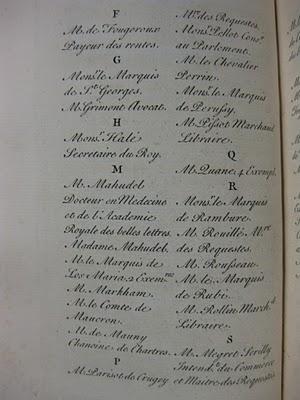 F
M. de Fougeroux
Payeur des rentes.
G
Mons.r le Marquis
de S.t Georges.
M. Grimont Avocat.
H
Mons.r Halé
Secretaire du Roy.
M
M. Mahudel
Docteur en Medecine
et de l'Academie
Royale des belles lettres.
Madame Mahudel.
M. le Marquis de
Les Maria 2 Exem.res
M. Markham.
M. le Comte de
Maucron.
M. de Mauny
Chanoine de Chartres.
P
M. Parisot de Crugey
M.e des Requestes.
Mons.r Pellot Cons.er
au Parlement.
M. le Chevalier
Perrin.
Mons.r le Marquis
de Perussy.
M. Pissot Marchand
Libraire.
Q
M. Quane 4 Exempl.
R
Mons.r le Marquis
de Rambure.
M. Rouillé M.re
des Requestes.
M. Rousseau.
M. le Marquis
de Rubi.
M. Rollin March.d
Libraire.
S
M. Megret Serilly
Intend.t du Commerce
et Maitre des Requestes